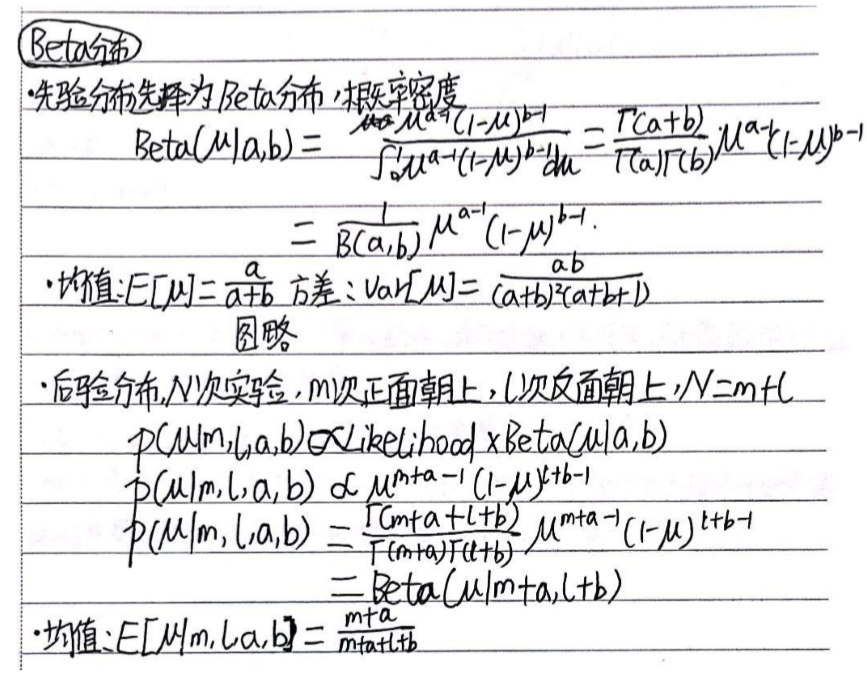 Beta分布
·先验分布选择为Beta分布,概率密度
Beta(μ|a,b) = μ^{a-1}(1-μ)^{b-1} / ∫₀¹μ^{a-1}(1-μ)^{b-1}dμ = Γ(a+b) / Γ(a)Γ(b) μ^{a-1}(1-μ)^{b-1}
= 1 / B(a,b) μ^{a-1}(1-μ)^{b-1}.
·均值:E[μ] = a / a+b 方差:var[μ] = ab / (a+b)²(a+b+1)
图略
·后验分布,N次实验,m次正面朝上,l次反面朝上,N=m+l
p(μ|m,l,a,b) ∝ Likelihood × Beta(μ|a,b)
p(μ|m,l,a,b) ∝ μ^{m+a-1}(1-μ)^{l+b-1}
p(μ|m,l,a,b) = Γ(m+a+l+b) / Γ(m+a)Γ(l+b) μ^{m+a-1}(1-μ)^{l+b-1}
= Beta(μ|m+a,l+b)
·均值:E[μ|m,l,a,b] = m+a / m+a+l+b